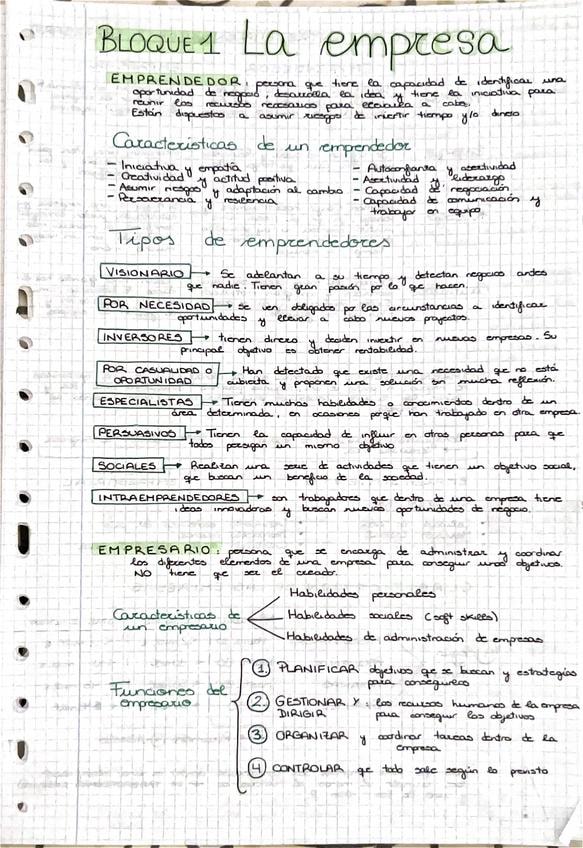 BLOQUE 1 La empresa
EMPRENDEDOR: persona que tiene la capacidad de identificar una
oportunidad de negocio, desarrolla la idea, y tiene la iniciativa para
reunir los recursos necesarios para llevarla a cabo.
Están dispuestos a asumir riesgos de invertir tiempo y/o dinero
Características de un emprendedor
- Iniciativa y empatía
- Creatividad y actitud positiva
- Asumir riesgos y adaptación al cambio
- Perseverancia y resiliencia
- Autoconfianza y asertividad
- Asertividad y liderazgo
- Capacidad de negociación
- Capacidad de comunicación y
trabajar en equipo
Tipos de emprendedores
VISIONARIO → Se adelantan a su tiempo y detectan negocios antes
que nadie. Tienen gran pasión por lo que hacen.
POR NECESIDAD → se ven obligados por las circunstancias a identificar
oportunidades y llevar a cabo nuevos proyectos.
INVERSORES → tienen dinero y deciden invertir en nuevas empresas. Su
principal objetivo es obtener rentabilidad.
POR CASUALIDAD O OPORTUNIDAD → Han detectado que existe una necesidad que no está
cubierta y proponen una solución sin mucha reflexión.
ESPECIALISTAS → Tienen muchas habilidades o conocimientos dentro de un
área determinada, en ocasiones porque han trabajado en otra empresa.
PERSUASIVOS → Tienen la capacidad de influir en otras personas para que
todos persigan un mismo objetivo
SOCIALES → Realizan una serie de actividades que tienen un objetivo social,
que buscan un beneficio de la sociedad.
INTRAEMPRENDEDORES → son trabajadores que dentro de una empresa tiene
ideas innovadoras y buscan nuevas oportunidades de negocio.
EMPRESARIO: persona que se encarga de administrar y coordinar
los diferentes elementos de una empresa para conseguir unos objetivos.
NO tiene que ser el creador.
Características de
un empresario
Habilidades personales
Habilidades sociales (soft skills)
Habilidades de administración de empresas
Funciones del
empresario
1. PLANIFICAR objetivos que se buscan y estrategias
para conseguirlos
2. GESTIONAR Y : los recursos humanos de la empresa
DIRIGIR para conseguir los objetivos
3. ORGANIZAR y coordinar tareas dentro de la
empresa
4 CONTROLAR que todo sale según lo previsto